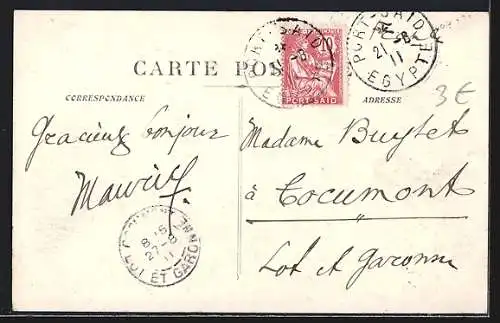 PORT-SAID
21 -8
11
EGYPTE
10
PORT-SAID
PORT-SAID
21 -8
11
EGYPTE
CARTE POS
CORRESPONDANCE
ADRESSE
3€
Gracieux bonjour
Maurice
Madame Buytet
à Cocumont
Lot et Garonne
COCUMONT
LOT ET GARONNE